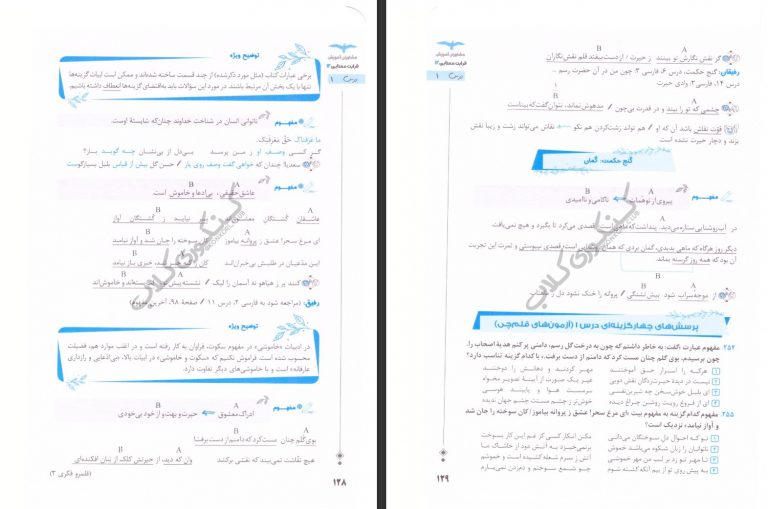 توضیح ویژه
برخی عبارات کتاب (مثل مورد ذکرشده) از چند قسمت ساخته شده‌اند و ممکن است ابیات گزینه‌ها
تنها با یک بخش آن مرتبط باشند. در مورد این سؤالات باید به‌اقتضای گزینه‌ها انعطاف داشته باشیم.
مشاوران آموزش
قرابت معنایی ۱۲
درس ۱
مفهوم ناتوانی انسان در شناخت خداوند چنان‌که شایستهٔ اوست.
ما عرفناک حقّ معرفتک.
گر کسی وصف او ز من پرسد بی‌دل از بی‌نشان چه گوید باز؟
سعدیا! چندان که خواهی گفت وصف روی یار / حسن گل بیش از قیاس بلبل بسیارگوست
A B
مفهوم عاشق حقیقی، بی‌ادعا و خاموش است.
عاشقان کشتگان معشوق‌اند بر نیاید ز کشتگان آواز
ای مرغ سحر! عشق ز پروانه بیاموز کان سوخته را جان شد و آواز نیامد
این مدّعیان در طلبش بی‌خبران‌اند کان را که خبر شد، خبری باز نیامد
رفیق: (مراجعه شود به فارسی ۲، درس ۱۱ / صفحهٔ ۹۸، آخرین مفهوم)
توضیح ویژه
در ادبیات «خاموشی» در مفهوم سکوت، فراوان به کار رفته است و در اغلب موارد هم، فضیلت
محسوب شده است. فراموش نکنیم که «سکوت و خاموشی» در ابیات بالا، بی‌ادعایی و رازداری
عارفانه» است و با خاموشی‌های دیگر تفاوت دارد.
A B
مفهوم ادراک معشوق حیرت و بهت و از خود بی‌خودی
بوی گلم چنان مست کرد که دامنم از دست برفت!
هیچ نقّاشت نمی‌بیند که نقشی برکشد وان که دید، از حیرتش کلک از بنان افکنده‌ای
(قلمرو فکری ۳)
۱۲۸
مشاوران آموزش
قرابت معنایی ۱۲
درس ۱
B A
گر نقش نگارش تو بینند ز حیرت / از دست بیفتد قلم نقش‌نگاران
رفیقان: گنج حکمت، درس ۶، فارسی ۳: چون من در آن حضرت رسم ...
درس ۱۴، فارسی ۳: وادی حیرت
چشمی که تو را بیند و در قدرت بی‌چون / مدهوش نماند، نتوان گفت که بیناست
قوّت نقاش باشد آن که او / هم تواند زشت کردن هم نکو نقاش می‌تواند زشت و زیبا نقش
بزند و دچار حیرت نشده است
گنج حکمت: گمان
مفهوم پیروی از توهمات ناکامی و ناامیدی
در آب روشنایی ستاره می‌دید. پنداشت که ماهی است. قصدی می‌کرد تا بگیرد و هیچ نمی‌یافت.
دیگر روز هرگاه که ماهی بدیدی، گمان بردی که همان روشنایی است؛ قصدی نپیوستی و ثمرت این تجربت
آن بود که همه روز گرسنه بماند.
از موجهٔ سراب شود بیش تشنگی / پروانه را خنک نشود دل ز ماهتاب
کنکوری کلاب
پرسش‌های چهارگزینه‌ای درس ۱ (آزمون‌های قلم‌چی)
۲۵۴- مفهوم عبارت «گفت: به خاطر داشتم که چون به درخت گل رسم، دامنی پر کنم هدیهٔ اصحاب را.
چون برسیدم، بوی گلم چنان مست کرد که دامنم از دست برفت.» با کدام گزینه تناسب دارد؟
۱ هرکه را اسرار حق آموختند مهر کردند و دهانش را دوختند
۲ نیست در دیدهٔ حیرت‌زدگان نقش دویی غیر یک صورت از آیینهٔ تصویر مخواه
۳ ای بلبل خوش‌سخن چه شیرین‌نفسی سرمست هوا و پایبند هوسی
۴ ای از فروغ رویت روشن چراغ دیده خوش‌تر ز چشم مستت چشم جهان ندیده
۲۵۵- مفهوم کدام گزینه به مفهوم بیت «ای مرغ سحر! عشق ز پروانه بیاموز/ کان سوخته را جان شد
و آواز نیامد» نزدیک است؟
۱ تو که احوال دل سوختگان می‌دانی مکن انکار کسی کز غم این کار بسوخت
۴ به پیش روی تو از بیم آنکه کشته شوم چو شمع سوختم و دم‌زدن نمی‌یارم
۱۲۹